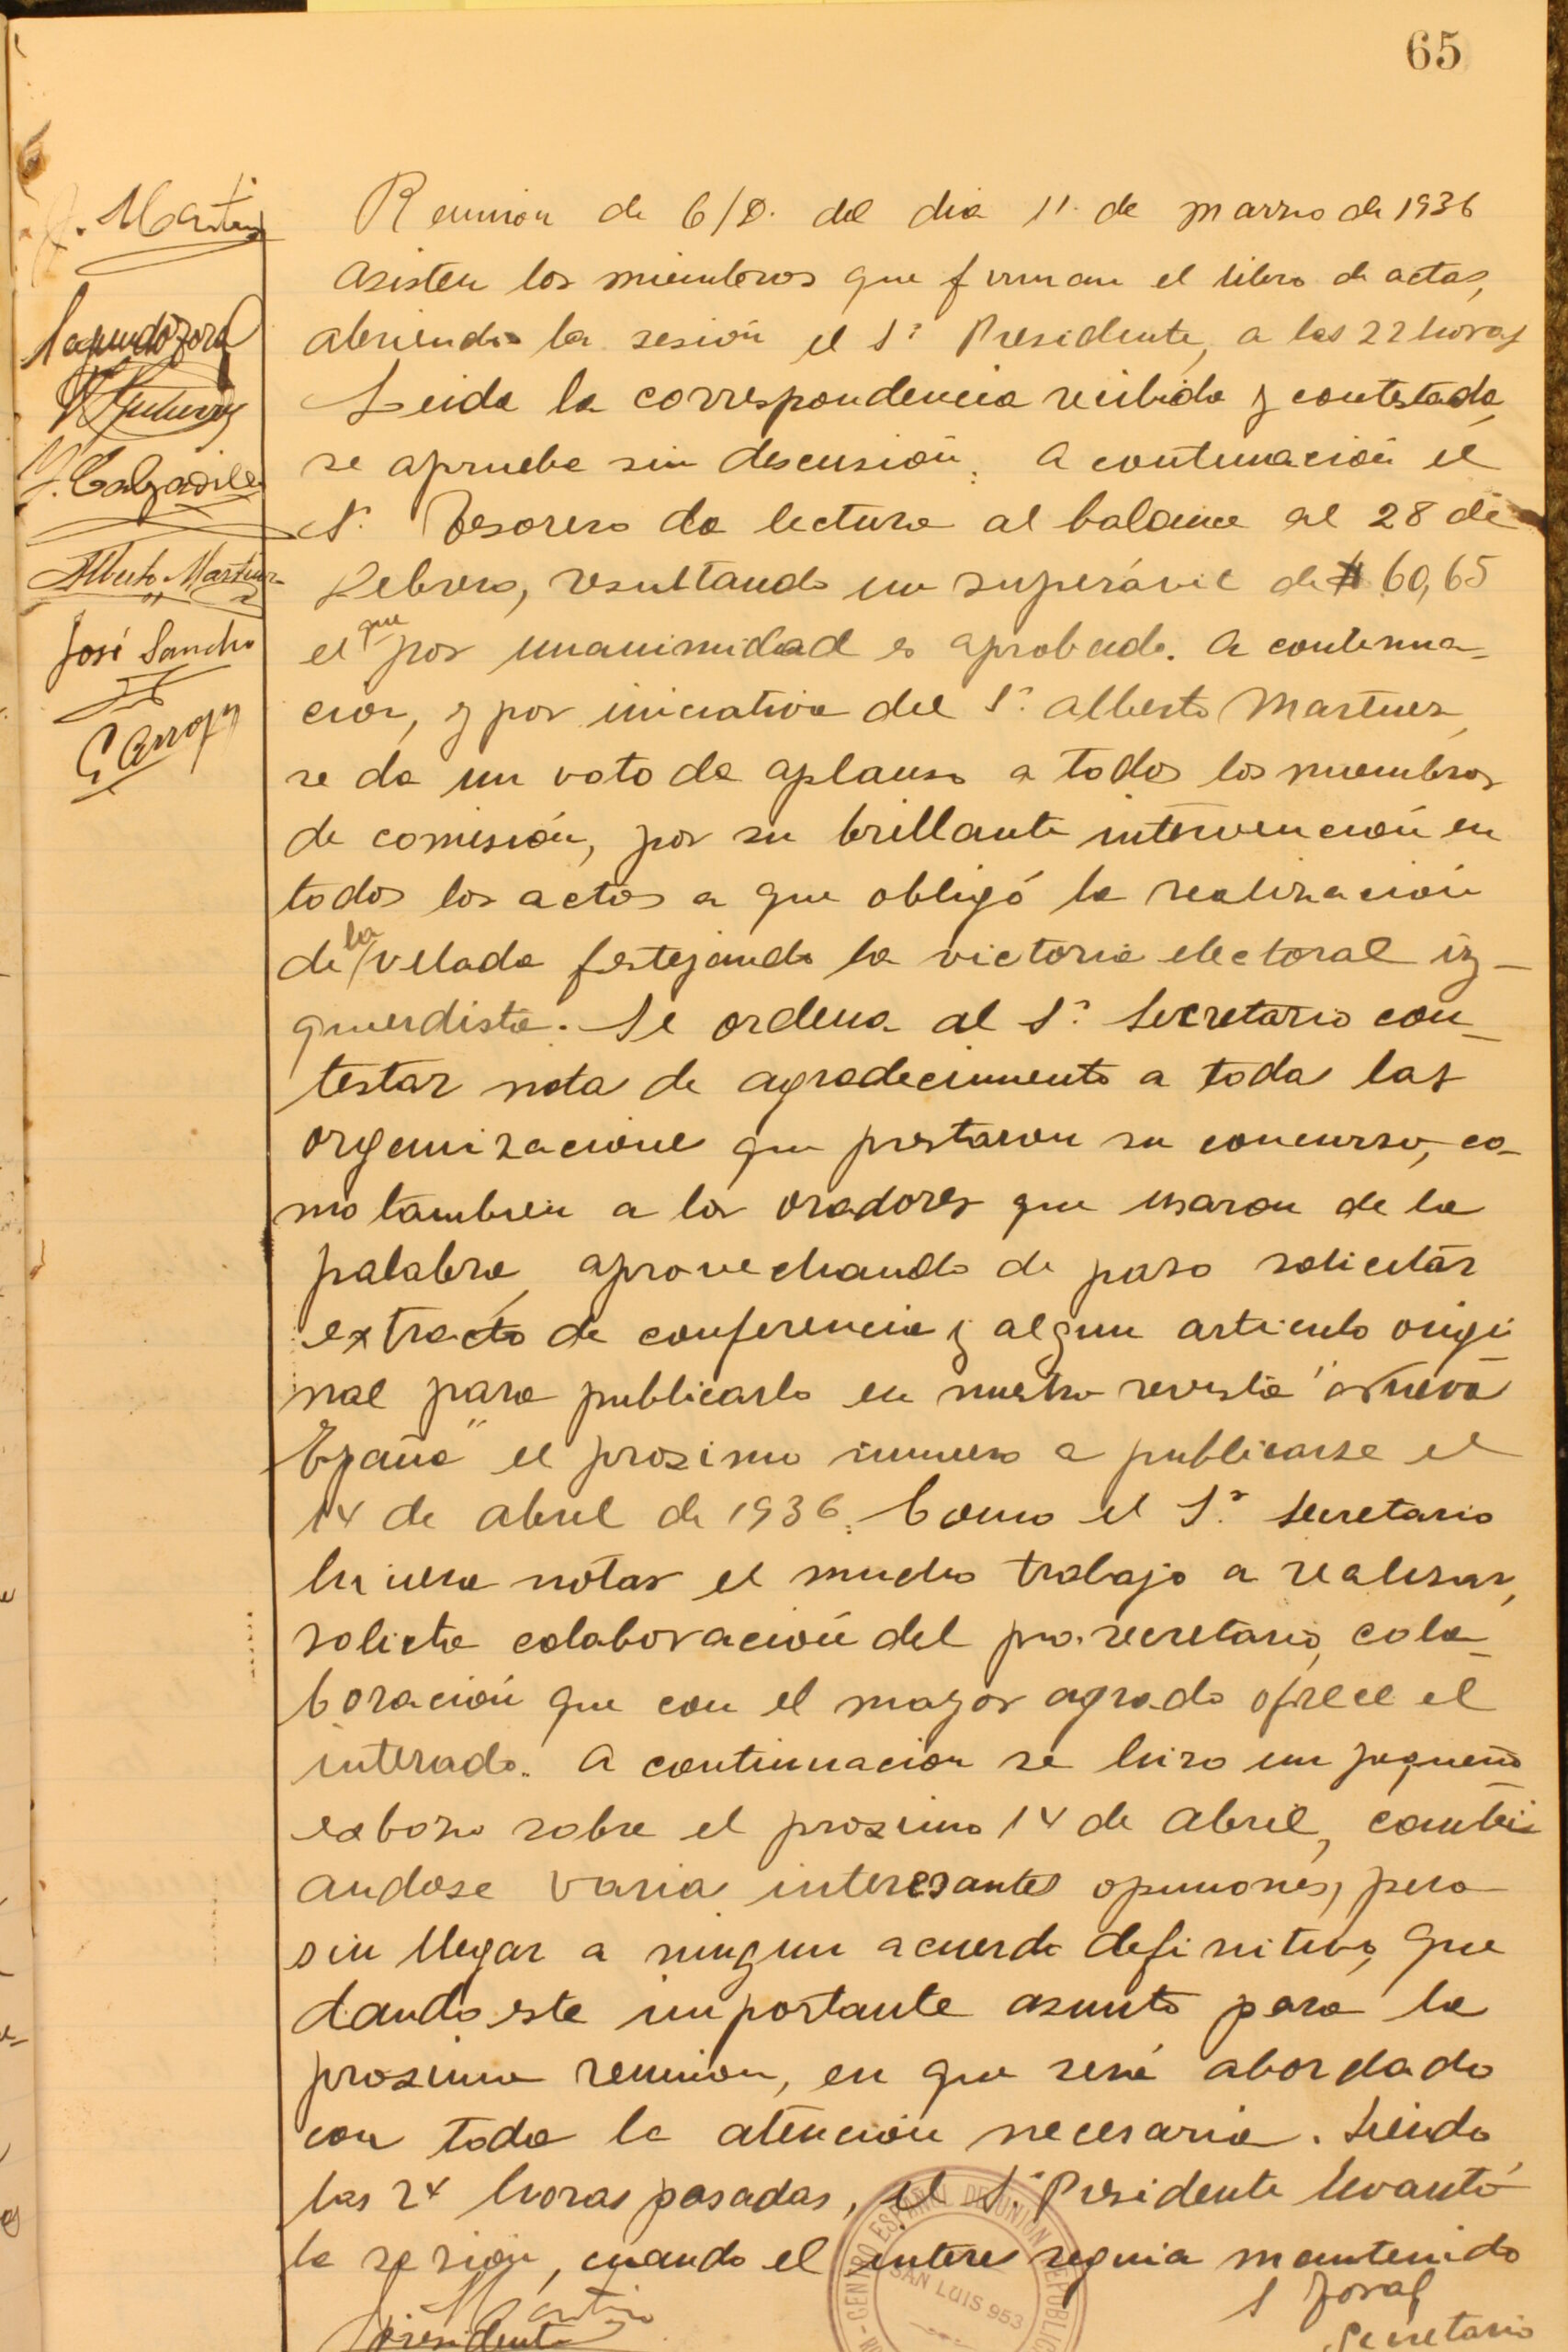 65
Reunion de C/D. del dia 11. de marzo de 1936
Asisten los miembros que firman el libro de actas,
abriendo la sesión el Sr. Presidente, a las 22 horas
Leida la correspondencia recibida y contestada,
se aprueba sin descusión. A continuación el
Sr. Tesorero da lectura al balance al 28 de
Febrero, resultando un superávit de $ 60,65
el que por unanimidad es aprobado. A continua-
cion, y por iniciativa del Sr. Alberto Martinez,
se da un voto de aplauso a todos los miembros
de comisión, por su brillante intervención en
todos los actos a que obligó la realización
de la velada festejando la victoria electoral iz-
quierdista. Se ordena al Sr. Secretario con-
testar nota de agradecimiento a todas las
organizaciones que prestaron su concurso, co-
mo tambien a los oradores que usaron de la
palabra, aprovechando de paso solicitar
extracto de conferencia y algun articulo origi
nal para publicarlo en nuestra revista "Nueva
España" el prosimo numero a publicarse el
14 de abril de 1936. Como el Sr. Secretario
hiciera notar el mucho trabajo a realizar,
solicita colaboración del pro-secretario, cola-
boración que con el mayor agrado ofrece el
interado. A continuacion se hizo un pequeño
esbozo sobre el prosimo 14 de Abril, cambi
andose varias interesantes opiniones, pero
sin llegar a ningun acuerdo definitivo, que
dando este importante asunto para la
prosima reunion, en que será abordado
con toda la atención necesaria. Siendo
las 24 horas pasadas, el Sr. Presidente levantó
la sesión, cuando el interes seguia mantenido
Martinez
Presidente
S Joraf
Secretario
J. Martinez
J. Calzadilla
Alberto Martinez
José Sancho
CENTRO ESPAÑOL DE UNION REPUBLIC
SAN LUIS 953